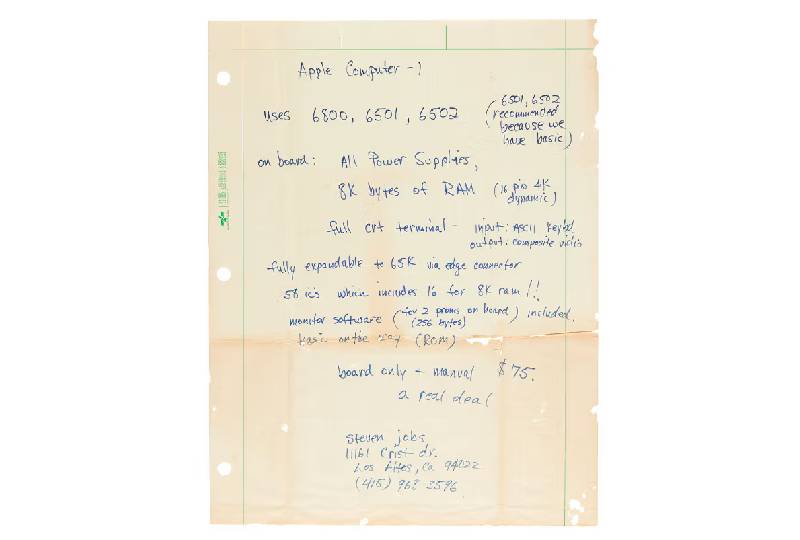 Apple Computer-1
uses 6800, 6501, 6502 (6501, 6502
recommended
because we
have basic)
on board: All Power Supplies,
8K bytes of RAM (16 pin 4K
dynamic)
full crt terminal - input: ASCII Keybd
output: composite video
fully expandable to 65K via edge connector
58 ic's which includes 16 for 8K ram!!
monitor software (for 2 proms on board) included.
(256 bytes)
basic on the way (ROM)
board only + manual $75.
a real deal
steven jobs
11161 Crist dr.
Los Altos, Ca 94022
(415) 968-3596